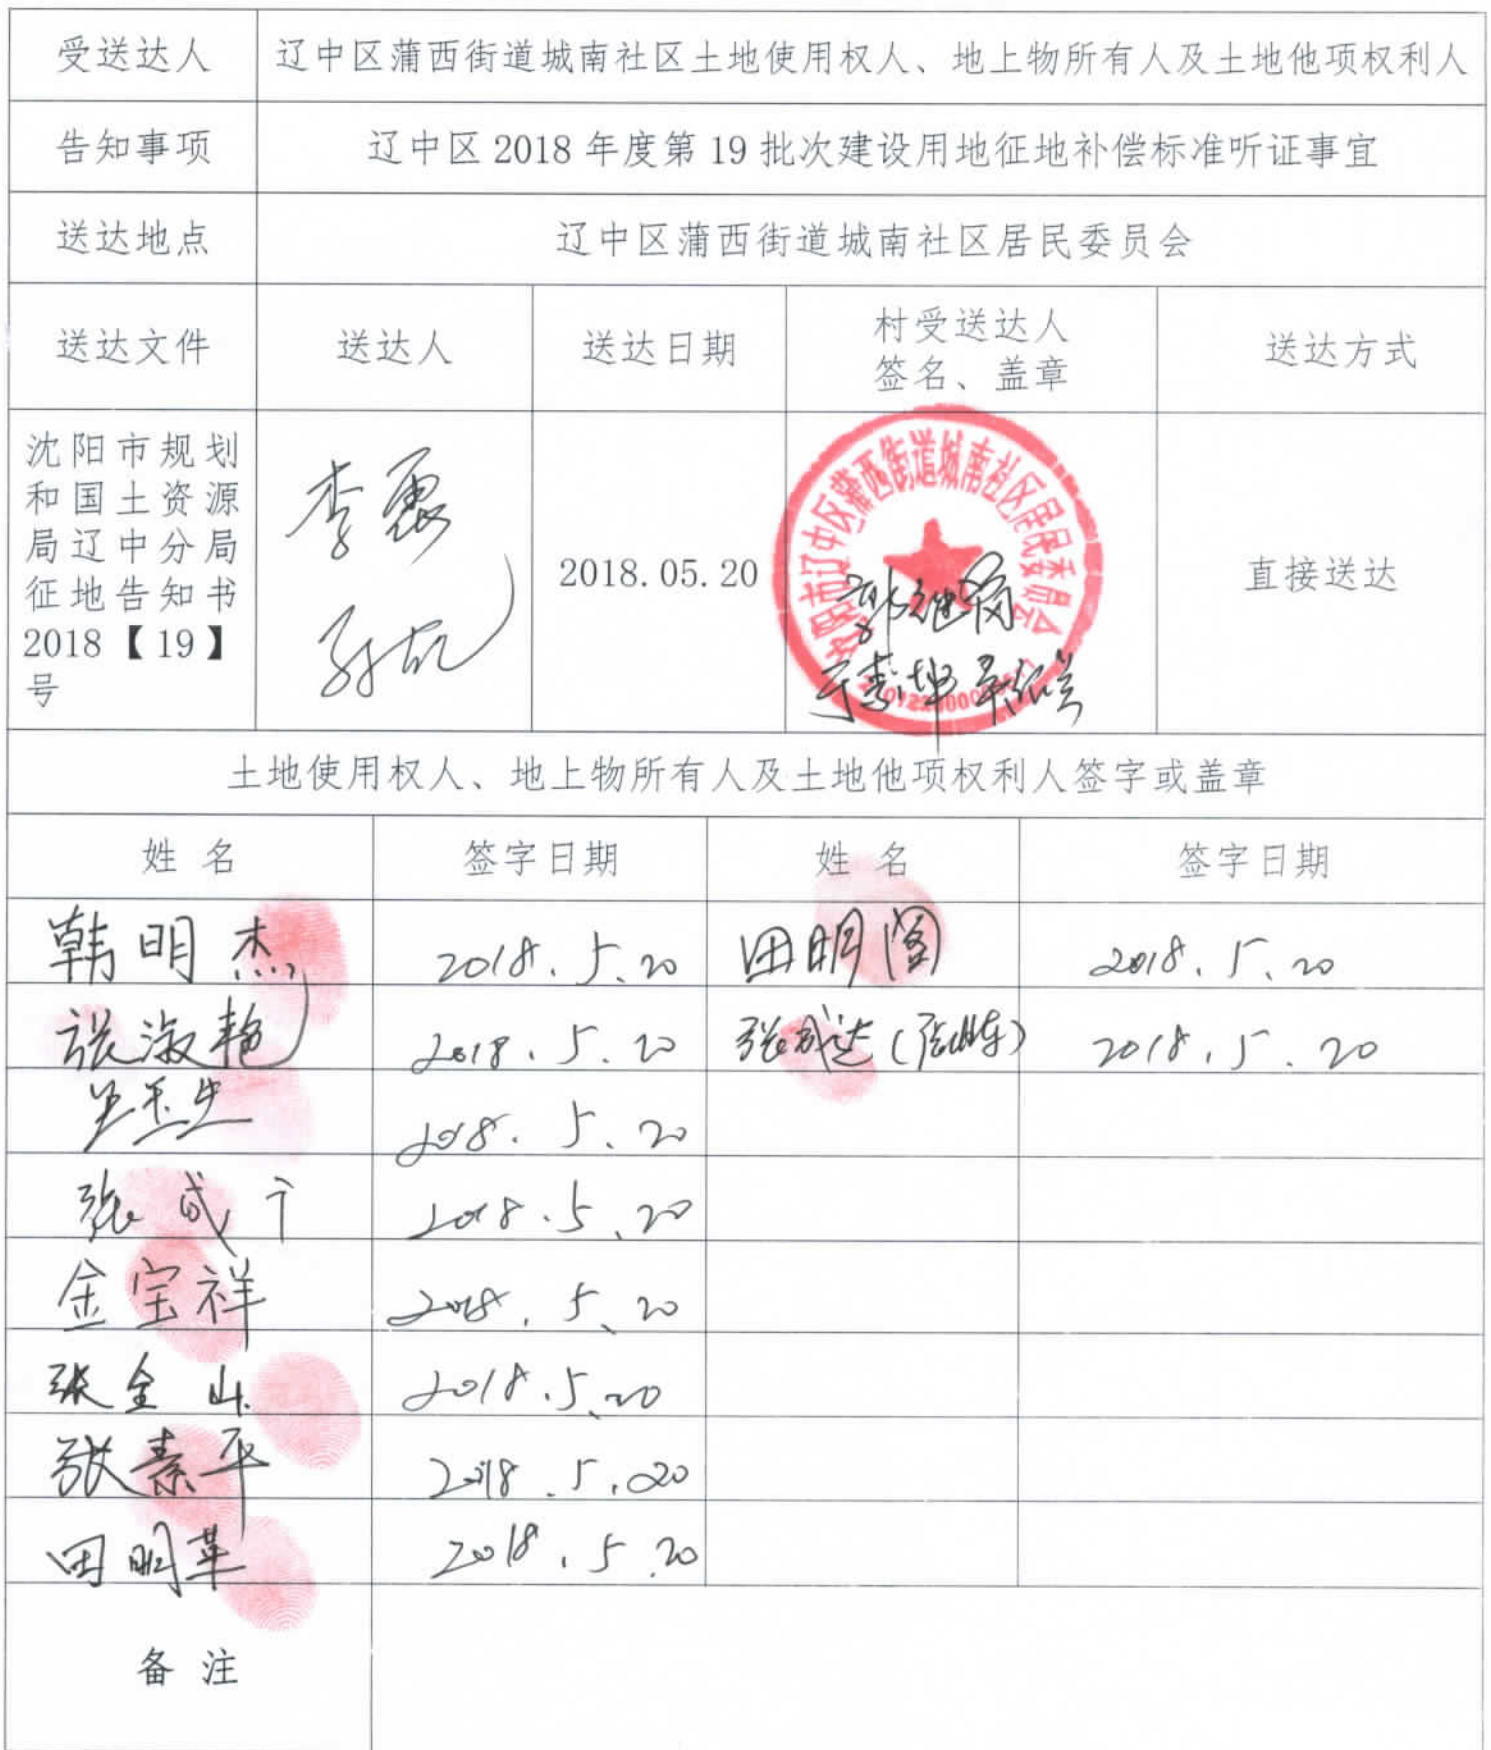 受送达人 辽中区蒲西街道城南社区土地使用权人、地上物所有人及土地他项权利人
告知事项 辽中区2018年度第19批次建设用地征地补偿标准听证事宜
送达地点 辽中区蒲西街道城南社区居民委员会
送达文件 送达人 送达日期 村受送达人 送达方式
签名、盖章
沈阳市规划
和国土资源
局辽中分局
征地告知书
2018【19】
号
2018.05.20
沈阳市辽中区蒲西街道城南社区居民委员会
直接送达
土地使用权人、地上物所有人及土地他项权利人签字或盖章
姓 名 签字日期 姓 名 签字日期
韩明杰 2018.5.20 田明阁 2018.5.20
张淑艳 2018.5.20 张成达 2018.5.20
2018.5.20
张成 2018.5.20
金宝祥 2018.5.20
张全山 2018.5.20
张素平 2018.5.20
田明革 2018.5.20
备 注